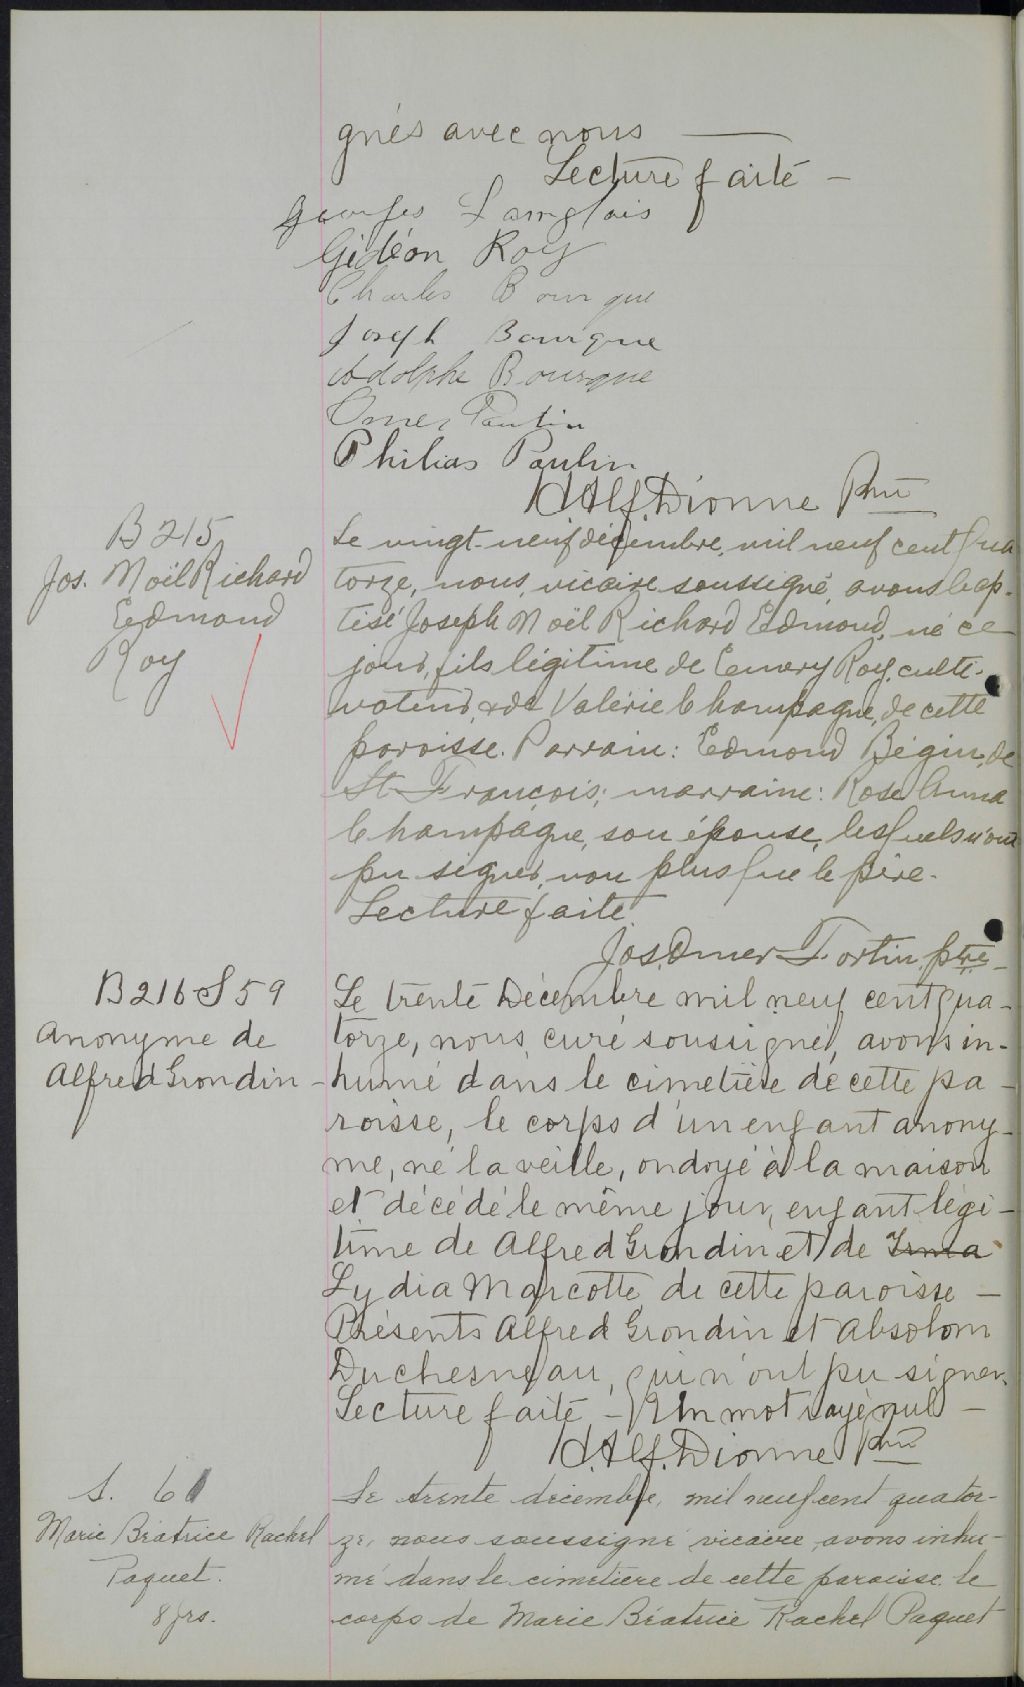 gnés avec nous —
Lecture faite —
Georges Langlois
Gédéon Roy
Charles Bourque
Joseph Bourque
Adolphe Bourque
Omer Paulin
Philias Paulin
J. Alf. Dionne Ptre
B 215
Jos. Noël Richard
Edmond
Roy
Le vingt-neuf décembre, mil neuf cent qua
torze, nous, vicaire soussigné, avons bap-
tisé Joseph Noël Richard Edmond, né ce
jour, fils légitime de Emery Roy, culti-
vateur, & de Valérie Champagne, de cette
paroisse. Parrain: Edmond Bégin, de
St-François; marraine: Rose Anna
Champagne, son épouse, lesquels n'ont
pu signer, non plus que le père.
Lecture faite.
Jos. Omer Fortin, ptre
B 216 S 59
Anonyme de
Alfred Grondin -
Le trente Décembre mil neuf cent qua-
torze, nous, curé soussigné, avons in-
humé dans le cimetière de cette pa-
roisse, le corps d'un enfant anony-
me, né la veille, ondoyé à la maison
et décédé le même jour, enfant légi-
time de Alfred Grondin et de Irma
Lydia Marcotte de cette paroisse —
Présents Alfred Grondin et Absolom
Duchesneau, qui n'ont pu signer.
Lecture faite — Un mot rayé nul —
J. Alf. Dionne Ptre
S. 60
Marie Béatrice Rachel
Paquet.
8 jrs.
Le trente décembre, mil neuf cent quator-
ze, nous soussigné vicaire, avons inhu-
mé dans le cimetière de cette paroisse le
corps de Marie Béatrice Rachel Paquet